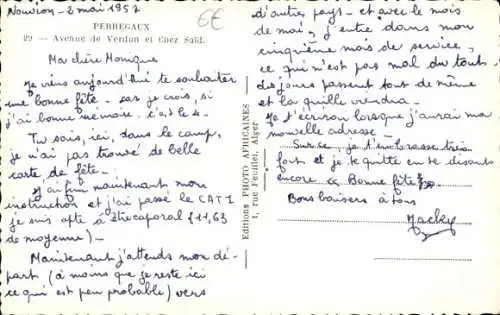 Nouvion - 2 mai 1957
6€
PERREGAUX
29 — Avenue de Verdun et Chez Saïd.
Ma chère Monique
Je viens aujourd'hui te souhaiter
une bonne fête - car je crois, si
j'ai bonne mémoire - c'est le 4 -
Tu sais, ici, dans le camp,
je n'ai pas trouvé de belle
carte de fête -
J'ai fini maintenant mon
instruction et j'ai passé le CAT1
je suis apte à être caporal (11,63
de moyenne) -
Maintenant j'attends mon dé-
part (à moins que je reste ici
ce qui est peu probable) vers
Editions PHOTO AFRICAINES
1, rue Feuillet, Alger
d'autres pays - et avec le mois
de mai, j'entre dans mon
cinquième mois de service,
ce qui n'est pas mal du tout.
des jours passent tout de même
et la quille viendra -
Je t'écrirai lorsque j'aurai ma
nouvelle adresse -
Sur ce, je t'embrasse bien
fort et je te quitte en te disant
encore « Bonne fête »
Bons baisers à tous
Jacky